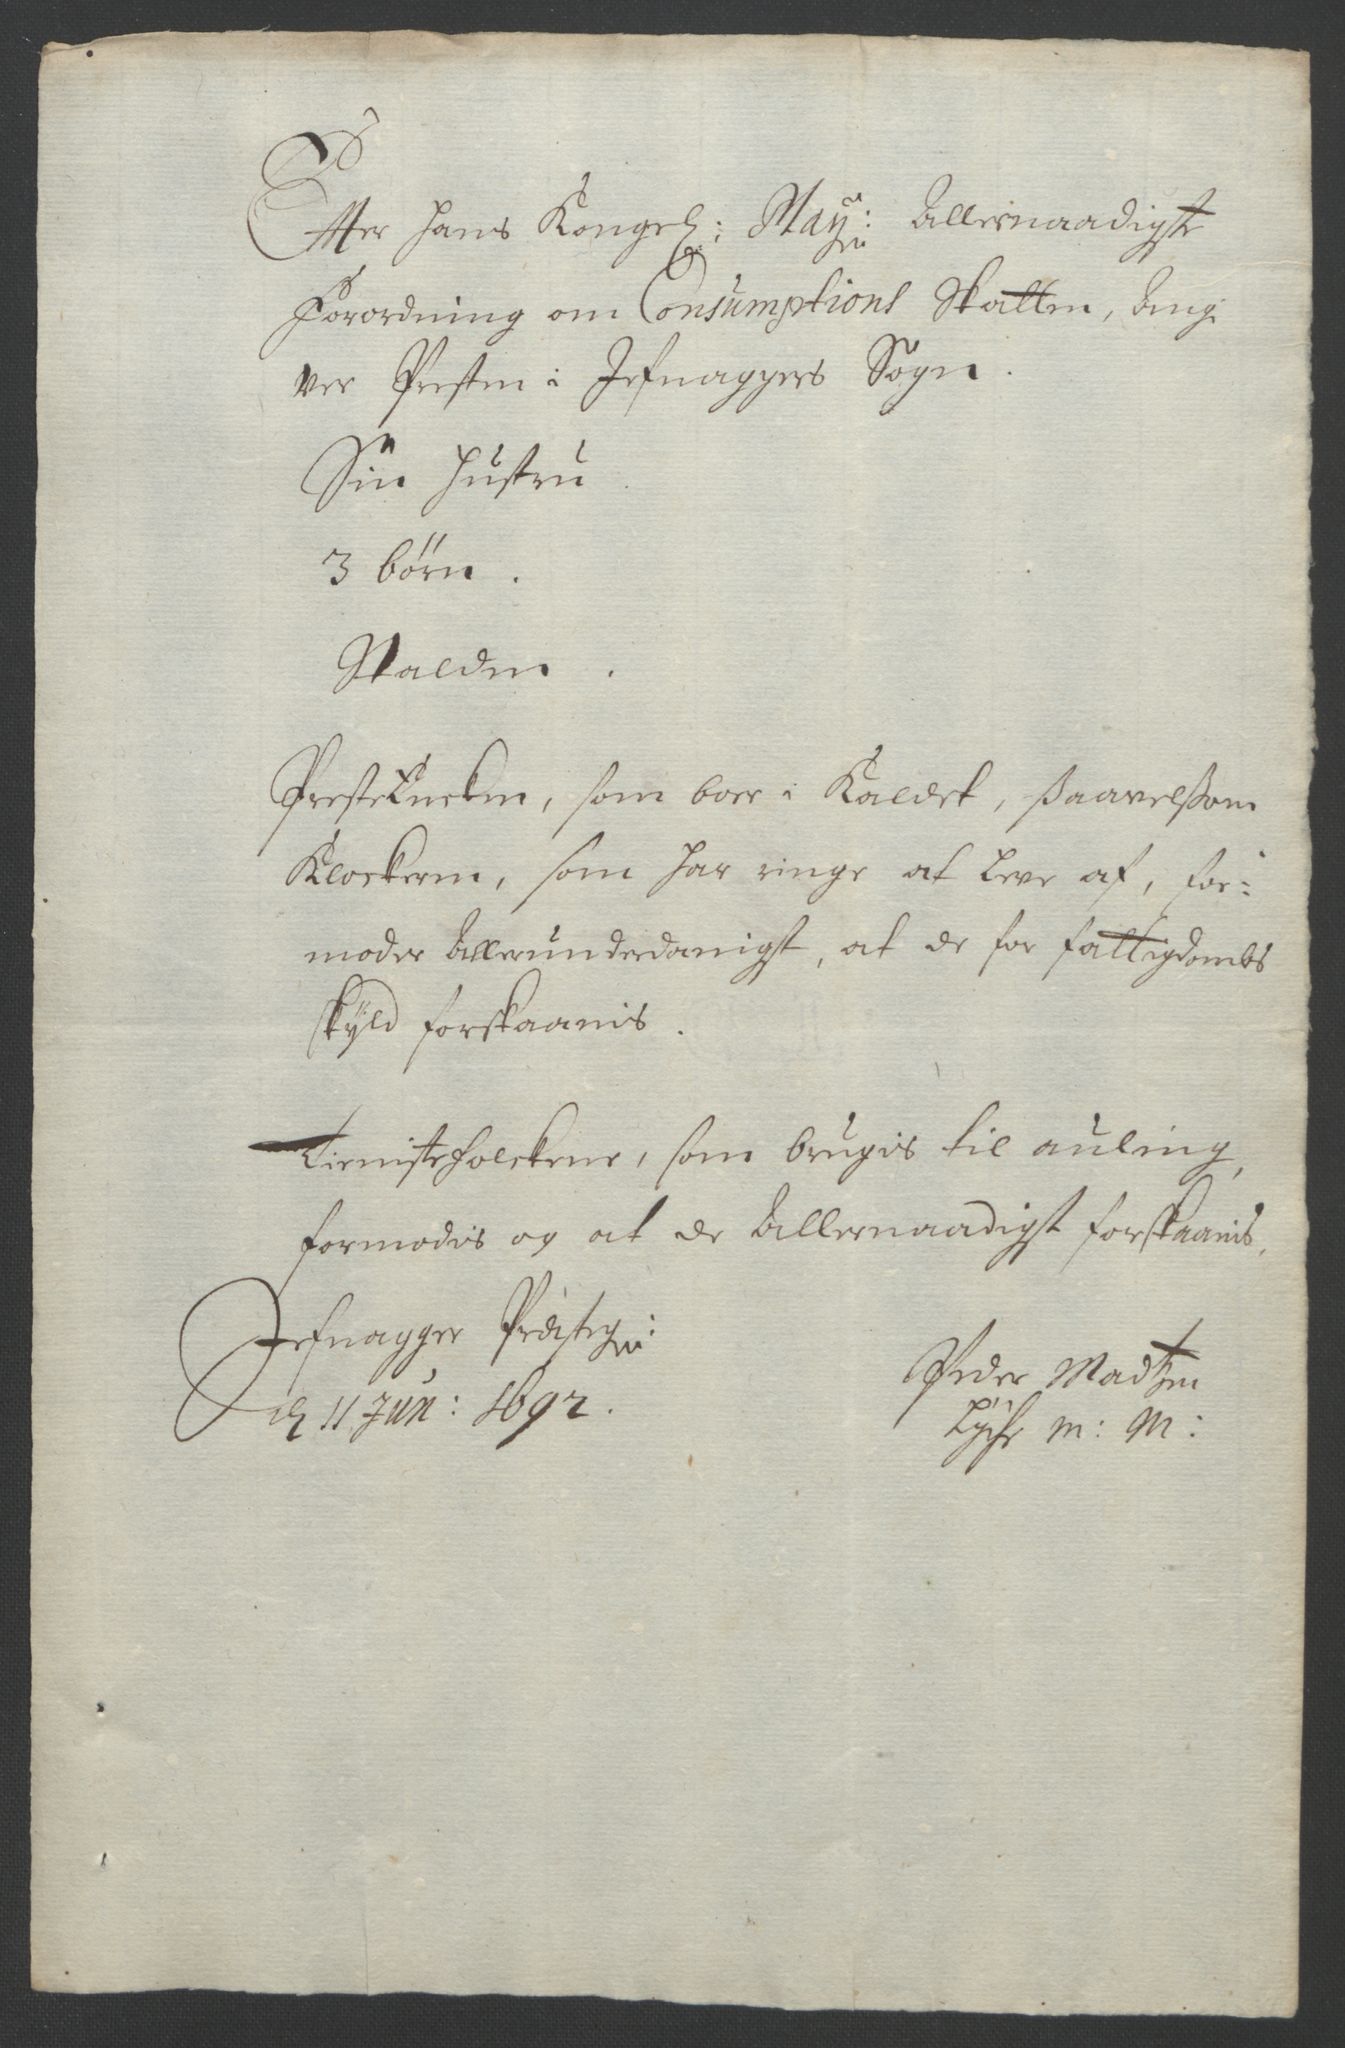 Effter hans Kongel: May: allernaadigste
Forordning om Consumptions Skatten, angi
ver Presten i Jefnagers Sogn.
Sin Hustru
3 börn.
Skalden.
PresteEncken, som boer i Kaldet, saavelsom
Klockeren, som har ringe at leve af, for=
moder allerunderdanigst, at de for fattigdombs
skyld forskaanis.
Tienistefolckene, som brugis til auling,
formodis og at de allernaadigst forskaanis.
Jefnager Præsteg:
d 11 Jun: 1692.
Peder Madtzen
Lyche m: M: